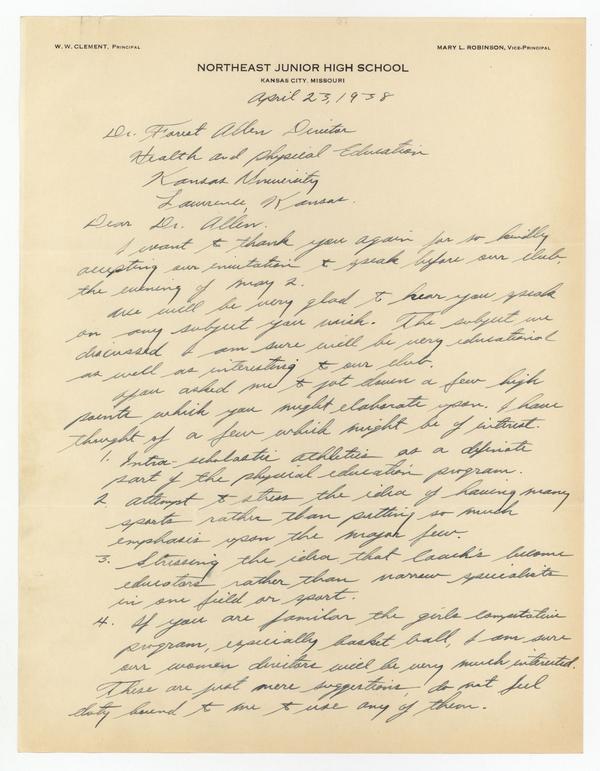 W. W. CLEMENT, PRINCIPAL
MARY L. ROBINSON, VICE-PRINCIPAL
NORTHEAST JUNIOR HIGH SCHOOL
KANSAS CITY, MISSOURI
April 23, 1938
Dr. Forest Allen Director
Health and Physical Education
Kansas University
Lawrence, Kansas.
Dear Dr. Allen.
I want to thank you again for so kindly
accepting our invitation to speak before our club,
the evening of May 2.
We will be very glad to hear you speak
on any subject you wish. The subject we
discussed I am sure will be very educational
as well as interesting to our club.
You asked me to jot down a few high
points which you might elaborate upon. I have
thought of a few which might be of interest.
1. Intra-scholastic athletics as a definate
part of the physical education program.
2. Attempt to stress the idea of having many
sports rather than putting so much
emphasis upon the major few.
3. Stressing the idea that coach's become
educators rather than narrow specialists
in one field or sport.
4. If you are familar the girls compatative
program, especially basket ball, I am sure
our women directors will be very much interested.
These are just mere suggestions, do not feel
duty bound to me to use any of them.